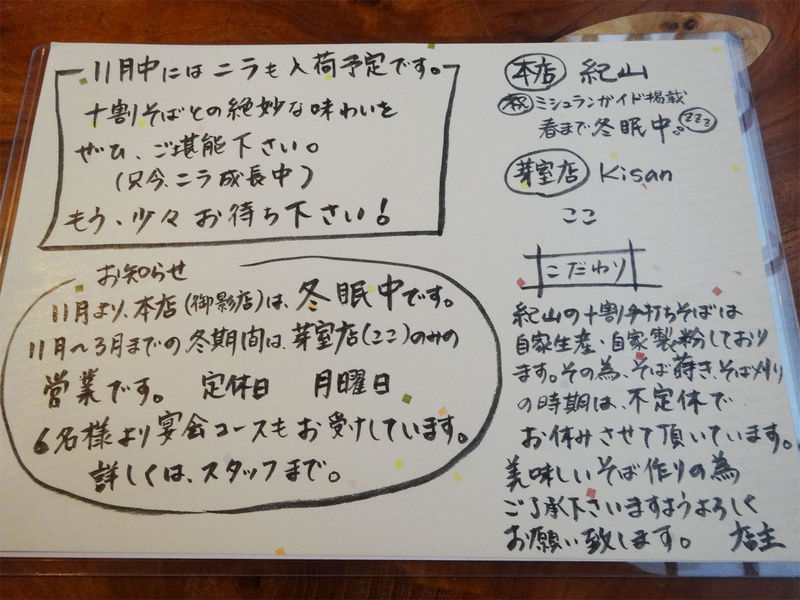 11月中にはニラも入荷予定です。
十割そばとの絶妙な味わいを
ぜひ、ご堪能下さい。
(只今ニラ成長中)
もう、少々お待ち下さい!
お知らせ
11月より、本店(御影店)は、冬眠中です。
11月〜3月までの冬期間は、芽室店(ここ)のみの
営業です。 定休日 月曜日
6名様より宴会コースもお受けしています。
詳しくは、スタッフまで。
本店 紀山
祝 ミシュランガイド掲載
春まで冬眠中。zzz
芽室店 Kisan
ここ
こだわり
紀山の十割手打ちそばは
自家生産・自家製粉しており
ます。その為、そば蒔き、そば刈り
の時期は、不定休で
お休みさせて頂いています。
美味しいそば作りの為
ご了承下さいますようよろしく
お願い致します。 店主